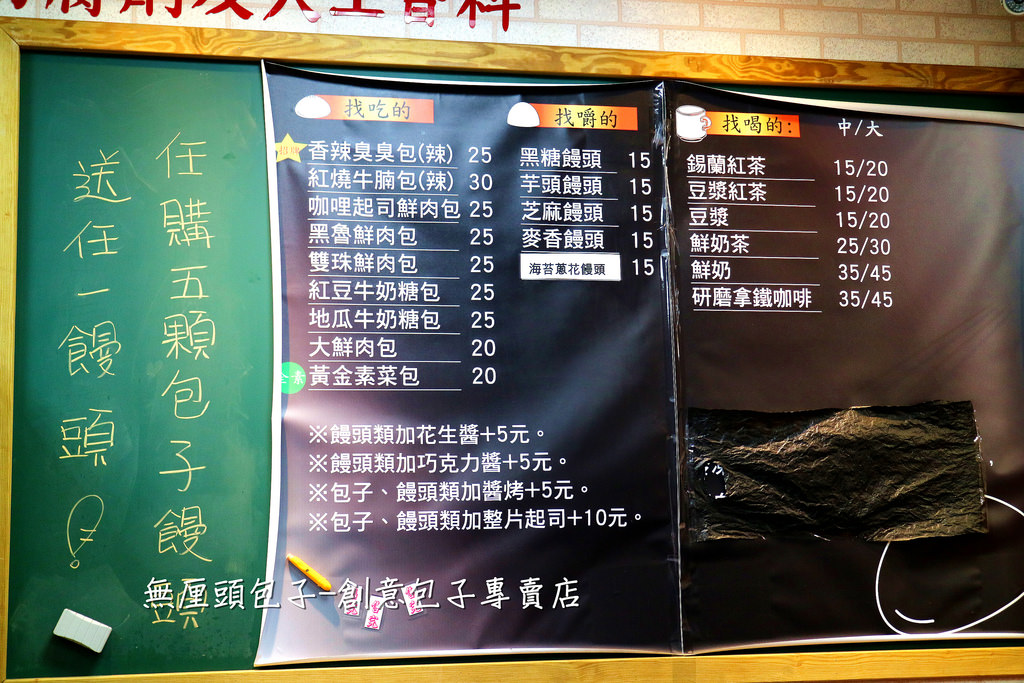 任購五顆包子饅頭
送任一饅頭!
找吃的
招牌
香辣臭臭包(辣) 25
紅燒牛腩包(辣) 30
咖哩起司鮮肉包 25
黑魯鮮肉包 25
雙珠鮮肉包 25
紅豆牛奶糖包 25
地瓜牛奶糖包 25
大鮮肉包 20
全素
黃金素菜包 20
找嚼的
黑糖饅頭 15
芋頭饅頭 15
芝麻饅頭 15
麥香饅頭 15
海苔蔥花饅頭 15
找喝的: 中/大
錫蘭紅茶 15/20
豆漿紅茶 15/20
豆漿 15/20
鮮奶茶 25/30
鮮奶 35/45
研磨拿鐵咖啡 35/45
※饅頭類加花生醬+5元。
※饅頭類加巧克力醬+5元。
※包子、饅頭類加醬烤+5元。
※包子、饅頭類加整片起司+10元。
無厘頭包子-創意包子專賣店